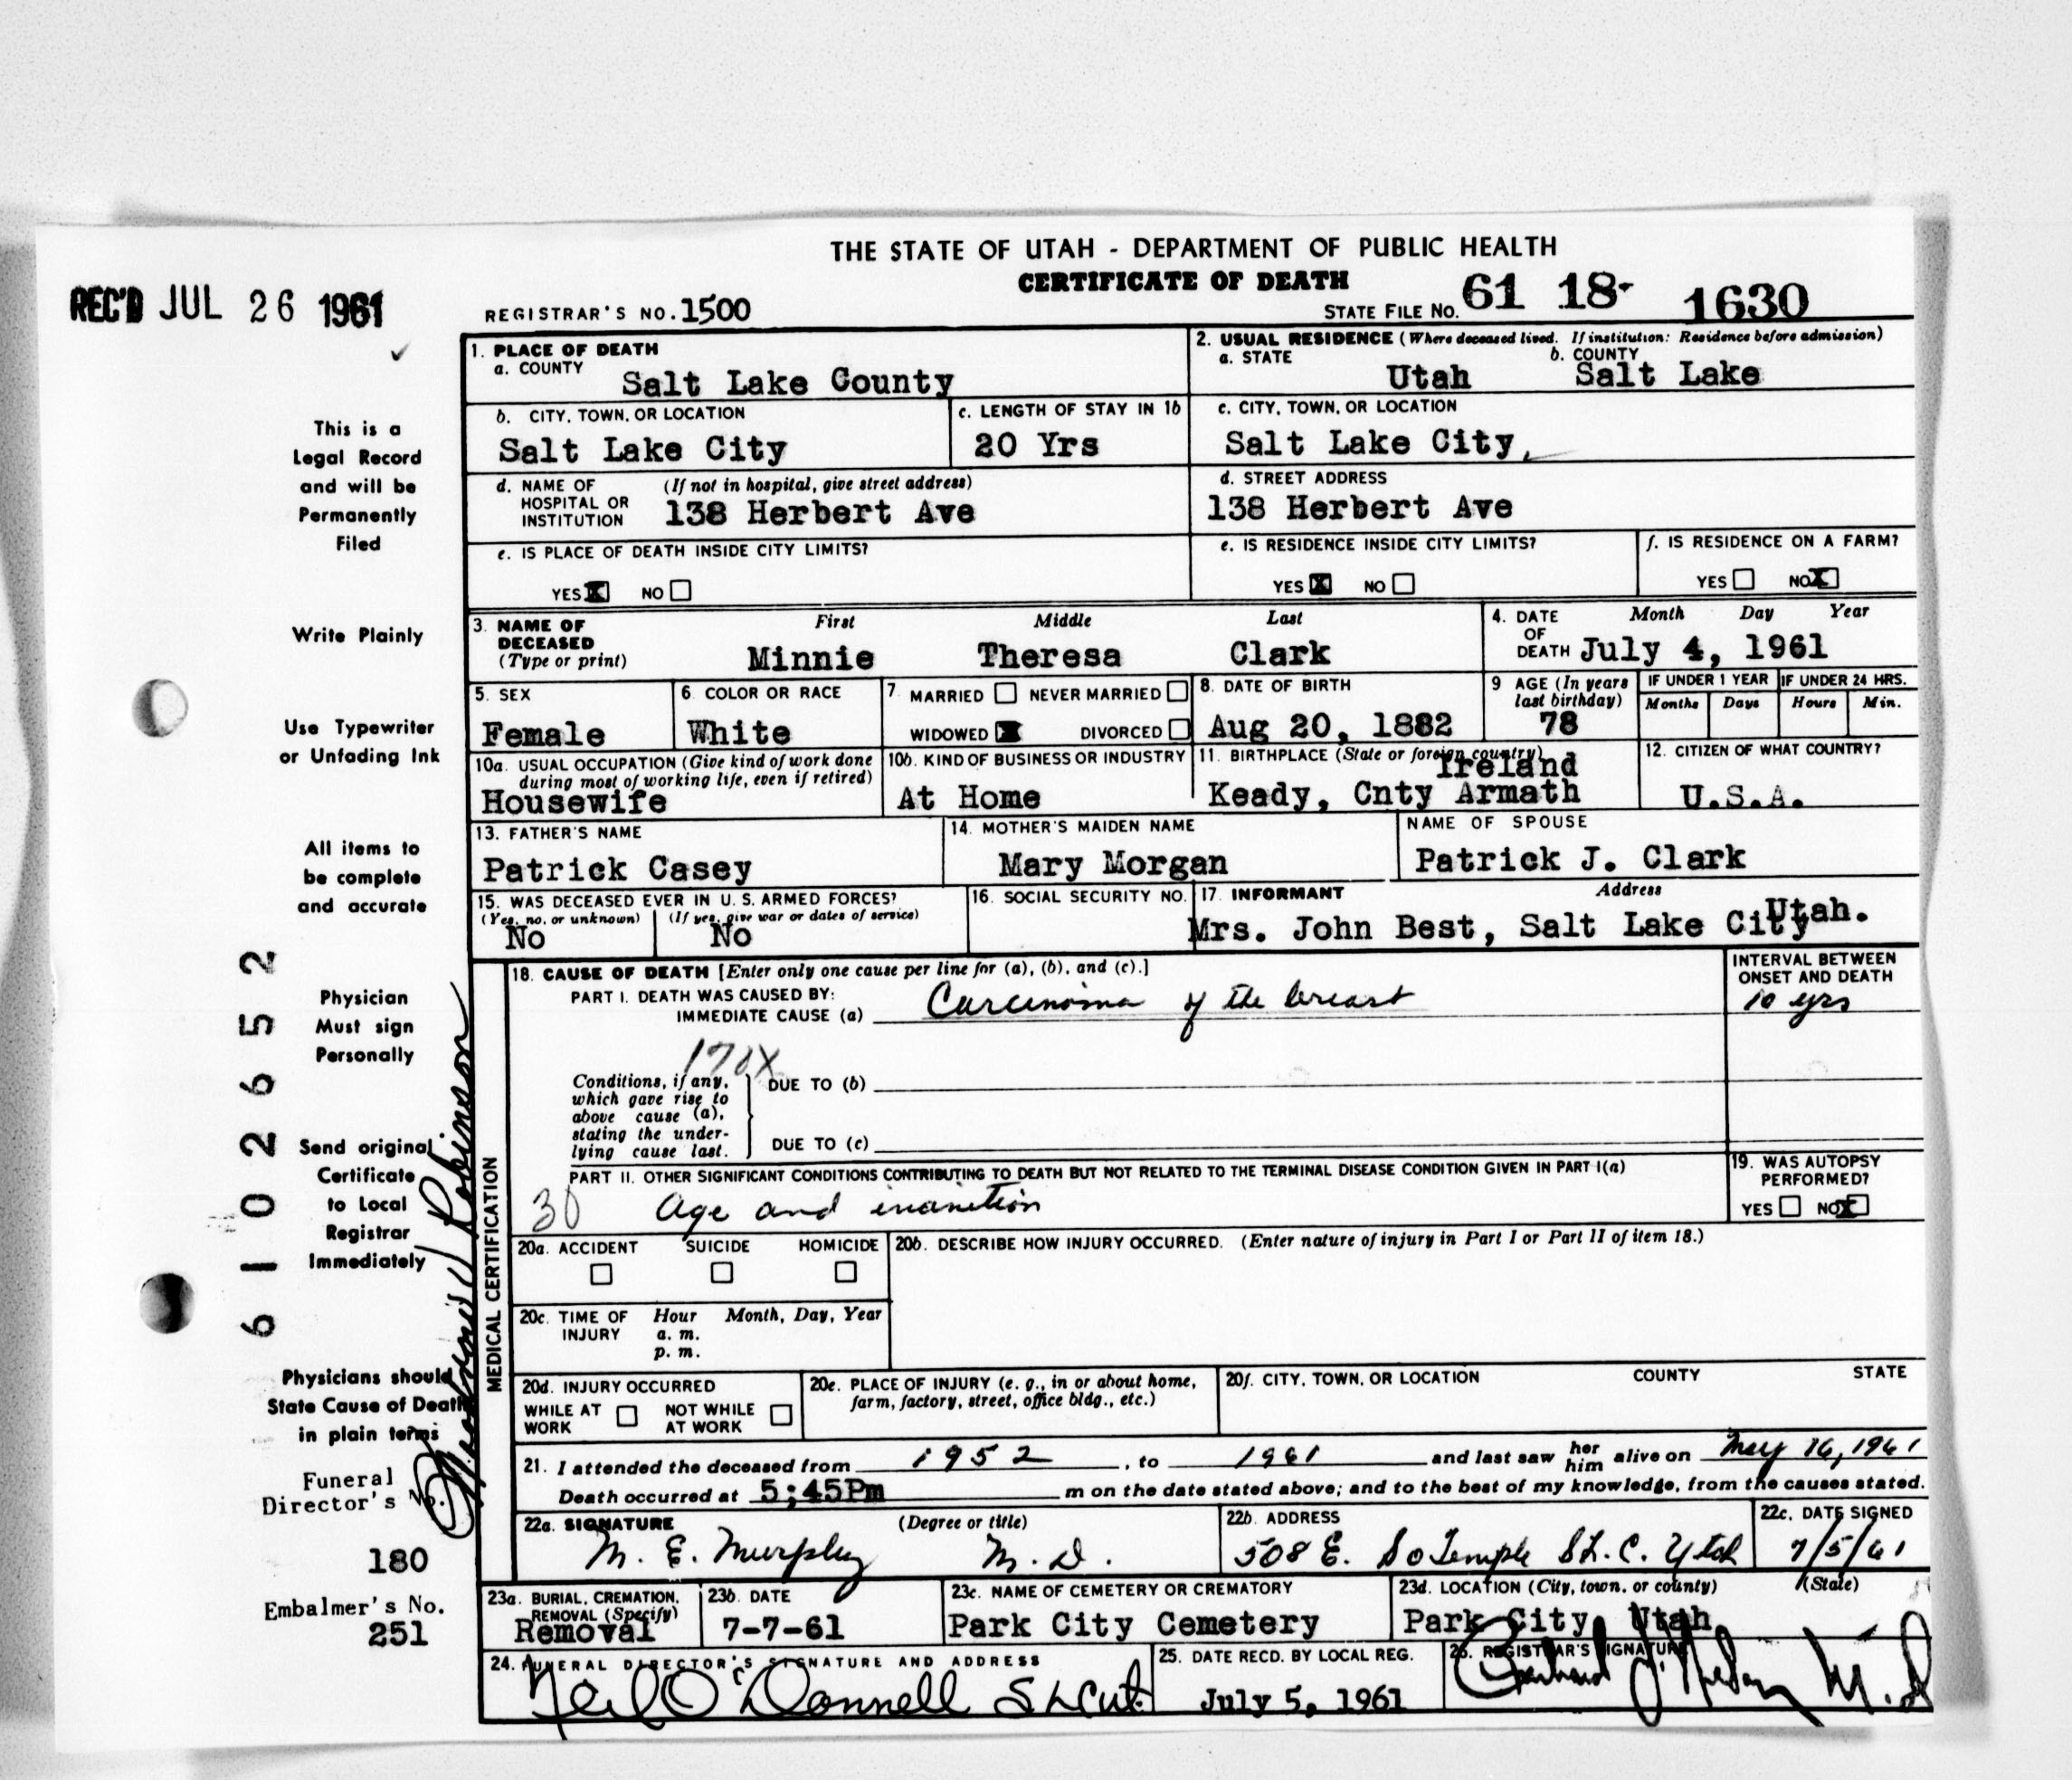 THE STATE OF UTAH - DEPARTMENT OF PUBLIC HEALTH
CERTIFICATE OF DEATH
REC'D JUL 26 1961
REGISTRAR'S NO. 1500
STATE FILE NO. 61 18- 1630
1. PLACE OF DEATH
a. COUNTY
Salt Lake County
2. USUAL RESIDENCE (Where deceased lived. If institution: Residence before admission)
a. STATE
Utah
b. COUNTY
Salt Lake
b. CITY, TOWN, OR LOCATION
Salt Lake City
c. LENGTH OF STAY IN 1b
20 Yrs
c. CITY, TOWN, OR LOCATION
Salt Lake City,
d. NAME OF HOSPITAL OR INSTITUTION
(If not in hospital, give street address)
138 Herbert Ave
d. STREET ADDRESS
138 Herbert Ave
e. IS PLACE OF DEATH INSIDE CITY LIMITS?
YES X NO
e. IS RESIDENCE INSIDE CITY LIMITS?
YES X NO
f. IS RESIDENCE ON A FARM?
YES NO X
3. NAME OF DECEASED
(Type or print)
First Middle Last
Minnie Theresa Clark
4. DATE OF DEATH
Month Day Year
July 4, 1961
5. SEX
Female
6. COLOR OR RACE
White
7. MARRIED NEVER MARRIED
WIDOWED X DIVORCED
8. DATE OF BIRTH
Aug 20, 1882
9 AGE (In years last birthday)
78
IF UNDER 1 YEAR
Months Days
IF UNDER 24 HRS.
Hours Min.
10a. USUAL OCCUPATION (Give kind of work done during most of working life, even if retired)
Housewife
10b. KIND OF BUSINESS OR INDUSTRY
At Home
11. BIRTHPLACE (State or foreign country)
Ireland
Keady, Cnty Armath
12. CITIZEN OF WHAT COUNTRY?
U.S.A.
13. FATHER'S NAME
Patrick Casey
14. MOTHER'S MAIDEN NAME
Mary Morgan
NAME OF SPOUSE
Patrick J. Clark
15. WAS DECEASED EVER IN U. S. ARMED FORCES?
(Yes, no, or unknown) (If yes, give war or dates of service)
No No
16. SOCIAL SECURITY NO.
17. INFORMANT Address
Mrs. John Best, Salt Lake City Utah.
18. CAUSE OF DEATH [Enter only one cause per line for (a), (b), and (c).]
INTERVAL BETWEEN ONSET AND DEATH
PART I. DEATH WAS CAUSED BY:
IMMEDIATE CAUSE (a) Carcinoma of the breast
10 yrs
170X
Conditions, if any, which gave rise to above cause (a), stating the underlying cause last.
DUE TO (b)
DUE TO (c)
PART II. OTHER SIGNIFICANT CONDITIONS CONTRIBUTING TO DEATH BUT NOT RELATED TO THE TERMINAL DISEASE CONDITION GIVEN IN PART I(a)
30 Age and inanition
19. WAS AUTOPSY PERFORMED?
YES NO X
20a. ACCIDENT SUICIDE HOMICIDE
20b. DESCRIBE HOW INJURY OCCURRED. (Enter nature of injury in Part I or Part II of item 18.)
20c. TIME OF INJURY
Hour Month, Day, Year
a. m.
p. m.
20d. INJURY OCCURRED
WHILE AT WORK NOT WHILE AT WORK
20e. PLACE OF INJURY (e. g., in or about home, farm, factory, street, office bldg., etc.)
20f. CITY, TOWN, OR LOCATION COUNTY STATE
21. I attended the deceased from 1952, to 1961 and last saw her him alive on May 16, 1961
Death occurred at 5;45Pm m on the date stated above; and to the best of my knowledge, from the causes stated.
22a. SIGNATURE (Degree or title)
M. E. Murphy M.D.
22b. ADDRESS
508 E. So Temple S.L.C. Utah
22c. DATE SIGNED
7/5/61
23a. BURIAL, CREMATION, REMOVAL (Specify)
Removal
23b. DATE
7-7-61
23c. NAME OF CEMETERY OR CREMATORY
Park City Cemetery
23d. LOCATION (City, town, or county) (State)
Park City Utah
24. FUNERAL DIRECTOR'S SIGNATURE AND ADDRESS
Neil O'Donnell S L C Ut.
25. DATE RECD. BY LOCAL REG.
July 5, 1961
26. REGISTRAR'S SIGNATURE
M.D
MEDICAL CERTIFICATION
This is a
Legal Record
and will be
Permanently
Filed
Write Plainly
Use Typewriter
or Unfading Ink
All items to
be complete
and accurate
Physician
Must sign
Personally
Send original
Certificate
to Local
Registrar
Immediately
Physicians should
State Cause of Death
in plain terms
Funeral
Director's No.
180
Embalmer's No.
251
61026652
Robinson